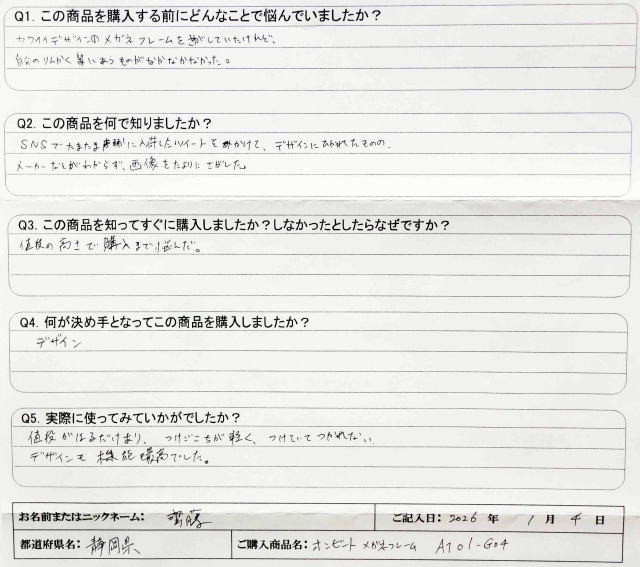 Q1. この商品を購入する前にどんなことで悩んでいましたか？
カワイイデザインのメガネフレームを探していたけれど、
自分のりんかく等にあうものがなかなかなかった。
Q2. この商品を何で知りましたか？
SNSでたまたま店頭に入荷したツイートを見かけて、デザインにひかれたものの、
メーカーなどがわからず、画像をたよりにさがした。
Q3. この商品を知ってすぐに購入しましたか？しなかったとしたらなぜですか？
値段の高さで購入まで悩んだ。
Q4. 何が決め手となってこの商品を購入しましたか？
デザイン
Q5. 実際に使ってみていかがでしたか？
値段がはるだけあり、つけごこちが軽く、つけていてつかれない。
デザインも機能も最高でした。
お名前またはニックネーム： 齊藤 ご記入日：2026 年 1 月 4 日
都道府県名： 静岡県 ご購入商品名：オンビート メガネフレーム ATO1-G04